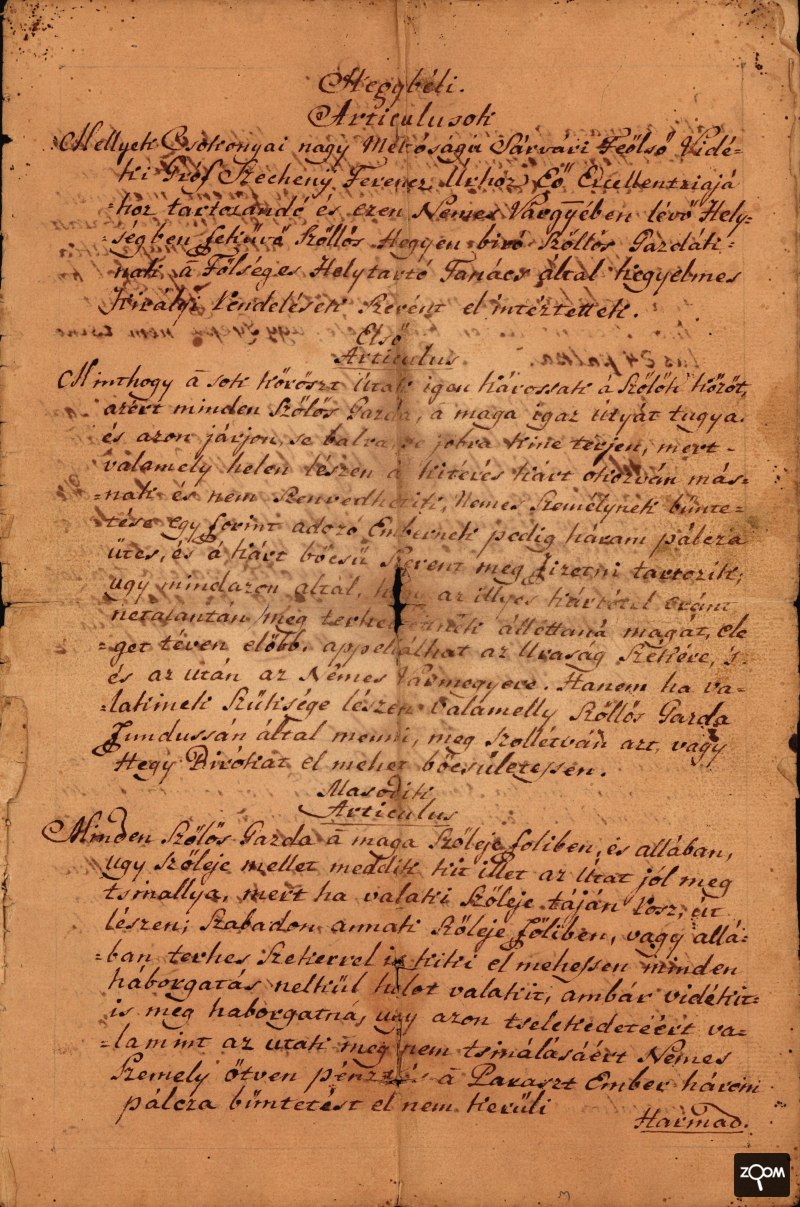 Hegybéli.
Articulusok
Mellyek Csokonyai nagy Méltóságú Sárvári Feőlső Vidé=
ki Gróf Szechény Ferencz Úrhoz Eő Excellentziájá
hoz tartozandó és ezen Nemes Vármgyében lévő Hely=
=ségben fekűvő Szőllős Hegyen biró Szőllős Gazdák=
nak, ā Fölséges Helytartó Tanács által kegyelmes
Királyi rendelések szerént el intéztettek.
Első
Articulus.
Minthogy ā sok köröszt útak igen károssak á Szőlők közöt,
azért minden Szőlős Gazda, á maga igaz útyát tugya.
és azon járjon, se balra, se jobra kine térjen, mert-
valamely helen lészen á kitérés kárt okozván más=
=nak és nem Szenvedhetik, Nemes Személynek bünte=
tése egy forint adozó Embernek pedig három pálcza
ütés, és á kárt böcsü Szerent meg fizetni tartozik,
ugy mindazon által, hogy az illyes kártétel eránt
netalántán meg terheltetnek állottaná magát, ele
=get téven előbb, appellálhat az Uraság Székére, 's.
és az után az Nemes Vármegyere. Hanem ha va=
=lakinek Szüksége lészen valamelly Szőllős Gazda
Fundussán által menni, meg szollétván azt, vagy
Hegy Birókat el mehet böcsületessen.
Masodik
Articulus
Minden Szőlős Gazda ā maga Szőleje foliben, és allában,
ugy Szőleje mellet meddik kit illet az útat jól meg
tsinallya, mert ha valaki Szőleje táján rosz, út
lészen; Szabadon annak Szőleje főliben, vagy allá=
=ban terhes Szekerrel is kiki el mehessen minden
háborgatás nelkül holot valakit, ambár vidékit=
is meg haborgatná, ugy azon tselekedeteért va=
=lamint az utak meg nem tsinálásáért Nemes
Szemely ötven pénzzel ā Paraszt Ember három
pálcza büntetést el nem kerüli
Harmad.
ZOOM